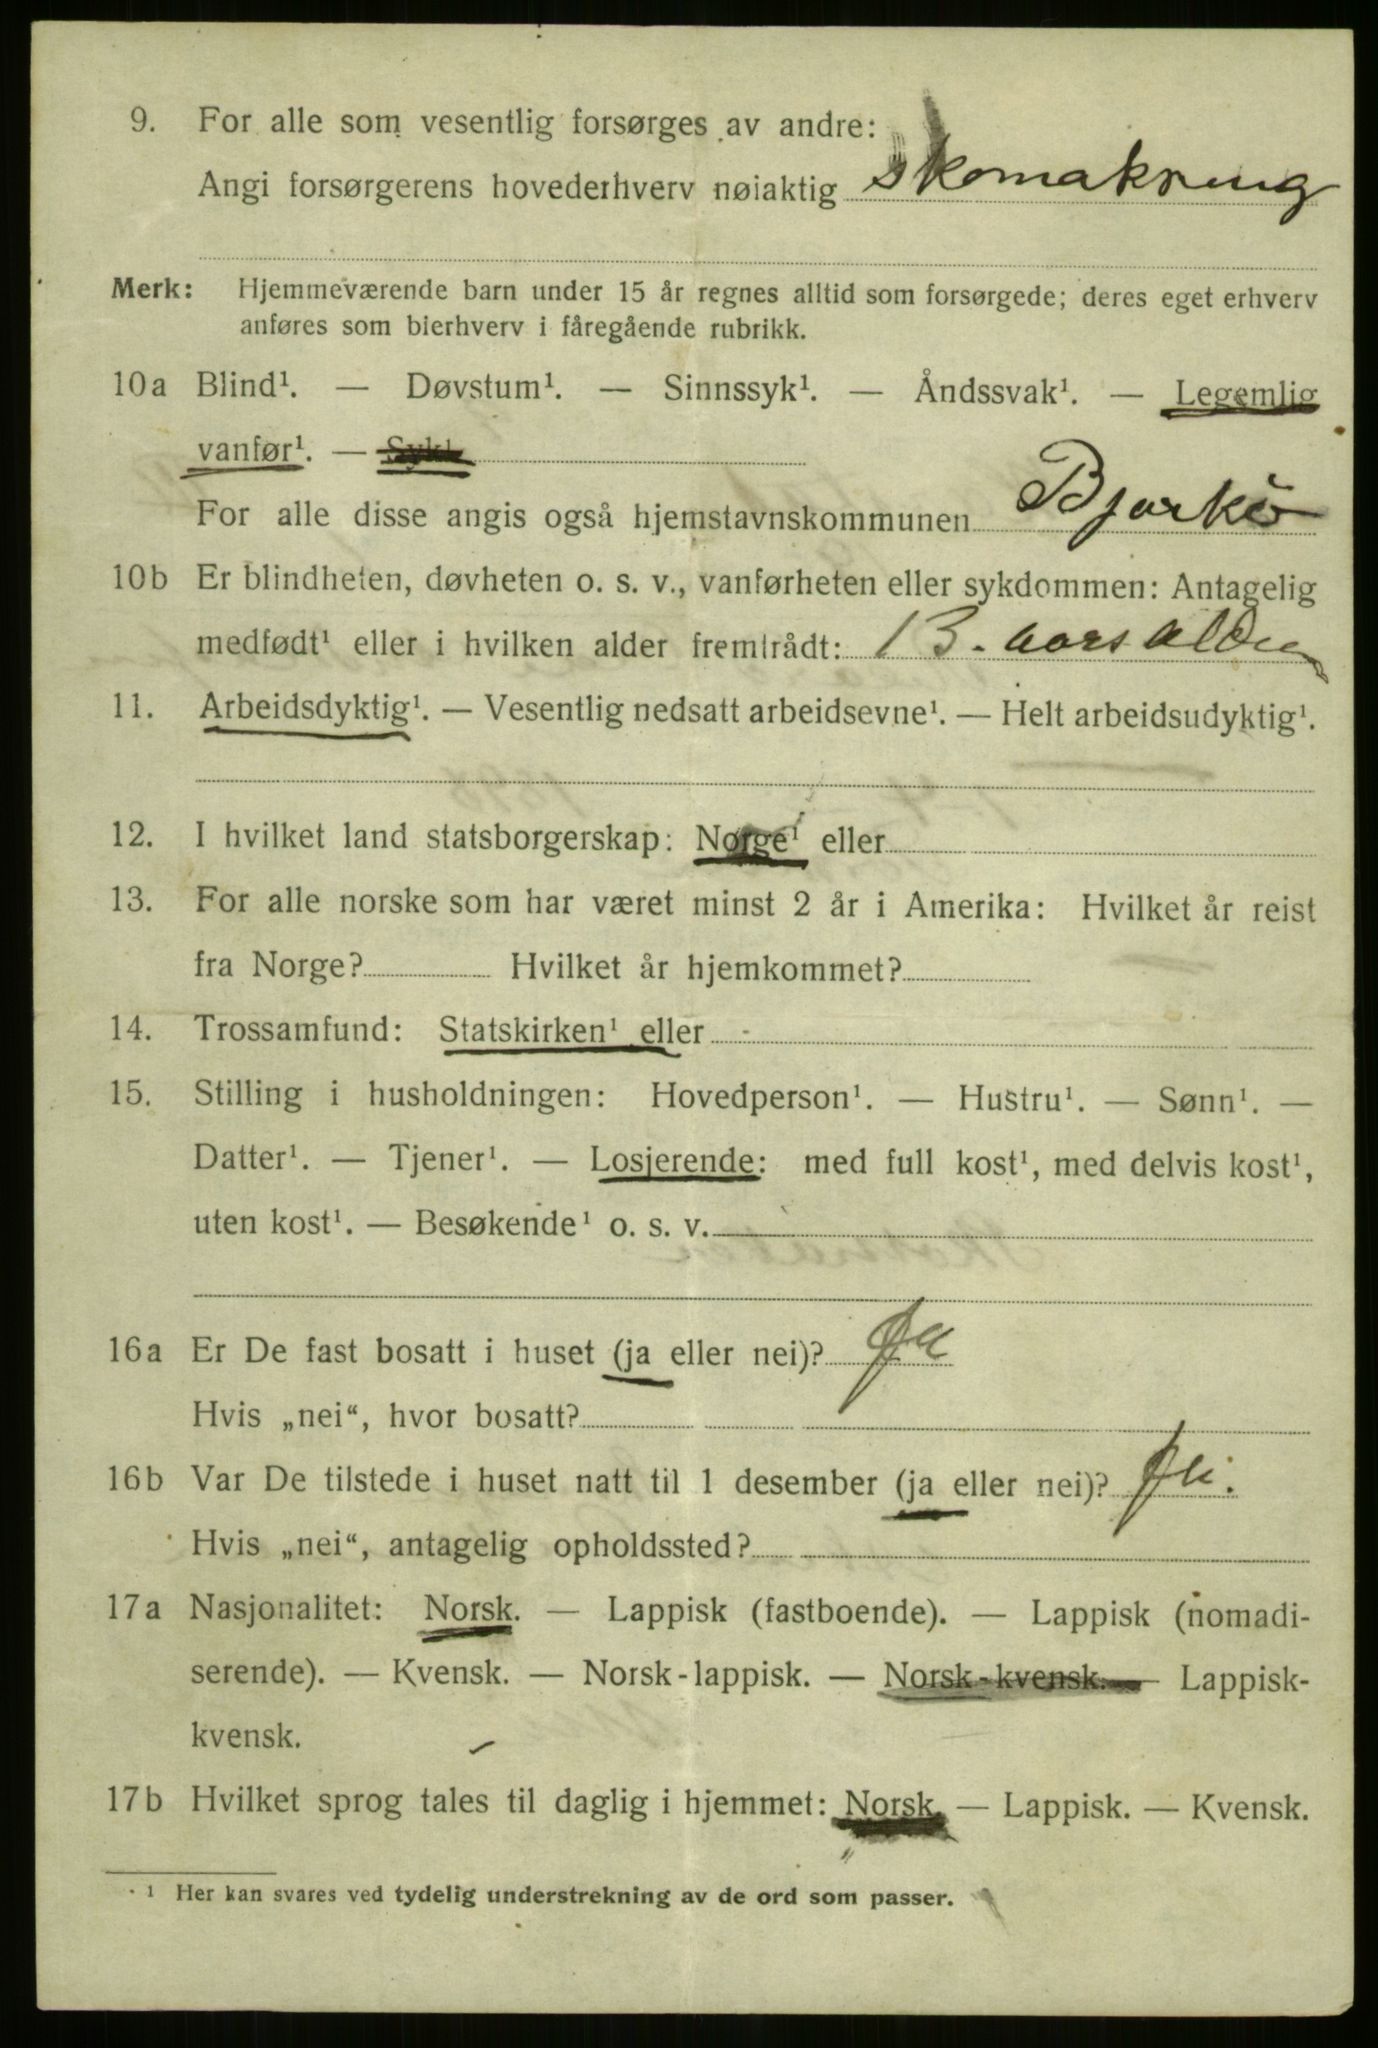 9. For alle som vesentlig forsørges av andre:
Angi forsørgerens hovederhverv nøiaktig skomakring
Merk: Hjemmeværende barn under 15 år regnes alltid som forsørgede; deres eget erhverv
anføres som bierhverv i fåregående rubrikk.
10a Blind¹. — Døvstum¹. — Sinnssyk¹. — Åndssvak¹. — Legemlig
vanfør¹. — Syk¹
For alle disse angis også hjemstavnskommunen Bjarkö
10b Er blindheten, døvheten o. s. v., vanførheten eller sykdommen: Antagelig
medfødt¹ eller i hvilken alder fremtrådt: 13. aars alder
11. Arbeidsdyktig¹. — Vesentlig nedsatt arbeidsevne¹. — Helt arbeidsudyktig¹.
12. I hvilket land statsborgerskap: Norge¹ eller
13. For alle norske som har været minst 2 år i Amerika: Hvilket år reist
fra Norge? Hvilket år hjemkommet?
14. Trossamfund: Statskirken¹ eller
15. Stilling i husholdningen: Hovedperson¹. — Hustru¹. — Sønn¹. —
Datter¹. — Tjener¹. — Losjerende: med full kost¹, med delvis kost¹,
uten kost¹. — Besøkende¹ o. s. v.
16a Er De fast bosatt i huset (ja eller nei)? Ja
Hvis „nei“, hvor bosatt?
16b Var De tilstede i huset natt til 1 desember (ja eller nei)? Ja.
Hvis „nei“, antagelig opholdssted?
17a Nasjonalitet: Norsk. — Lappisk (fastboende). — Lappisk (nomadi-
serende). — Kvensk. — Norsk-lappisk. — Norsk-kvensk. — Lappisk-
kvensk.
17b Hvilket sprog tales til daglig i hjemmet: Norsk. — Lappisk. — Kvensk.
¹ Her kan svares ved tydelig understrekning av de ord som passer.